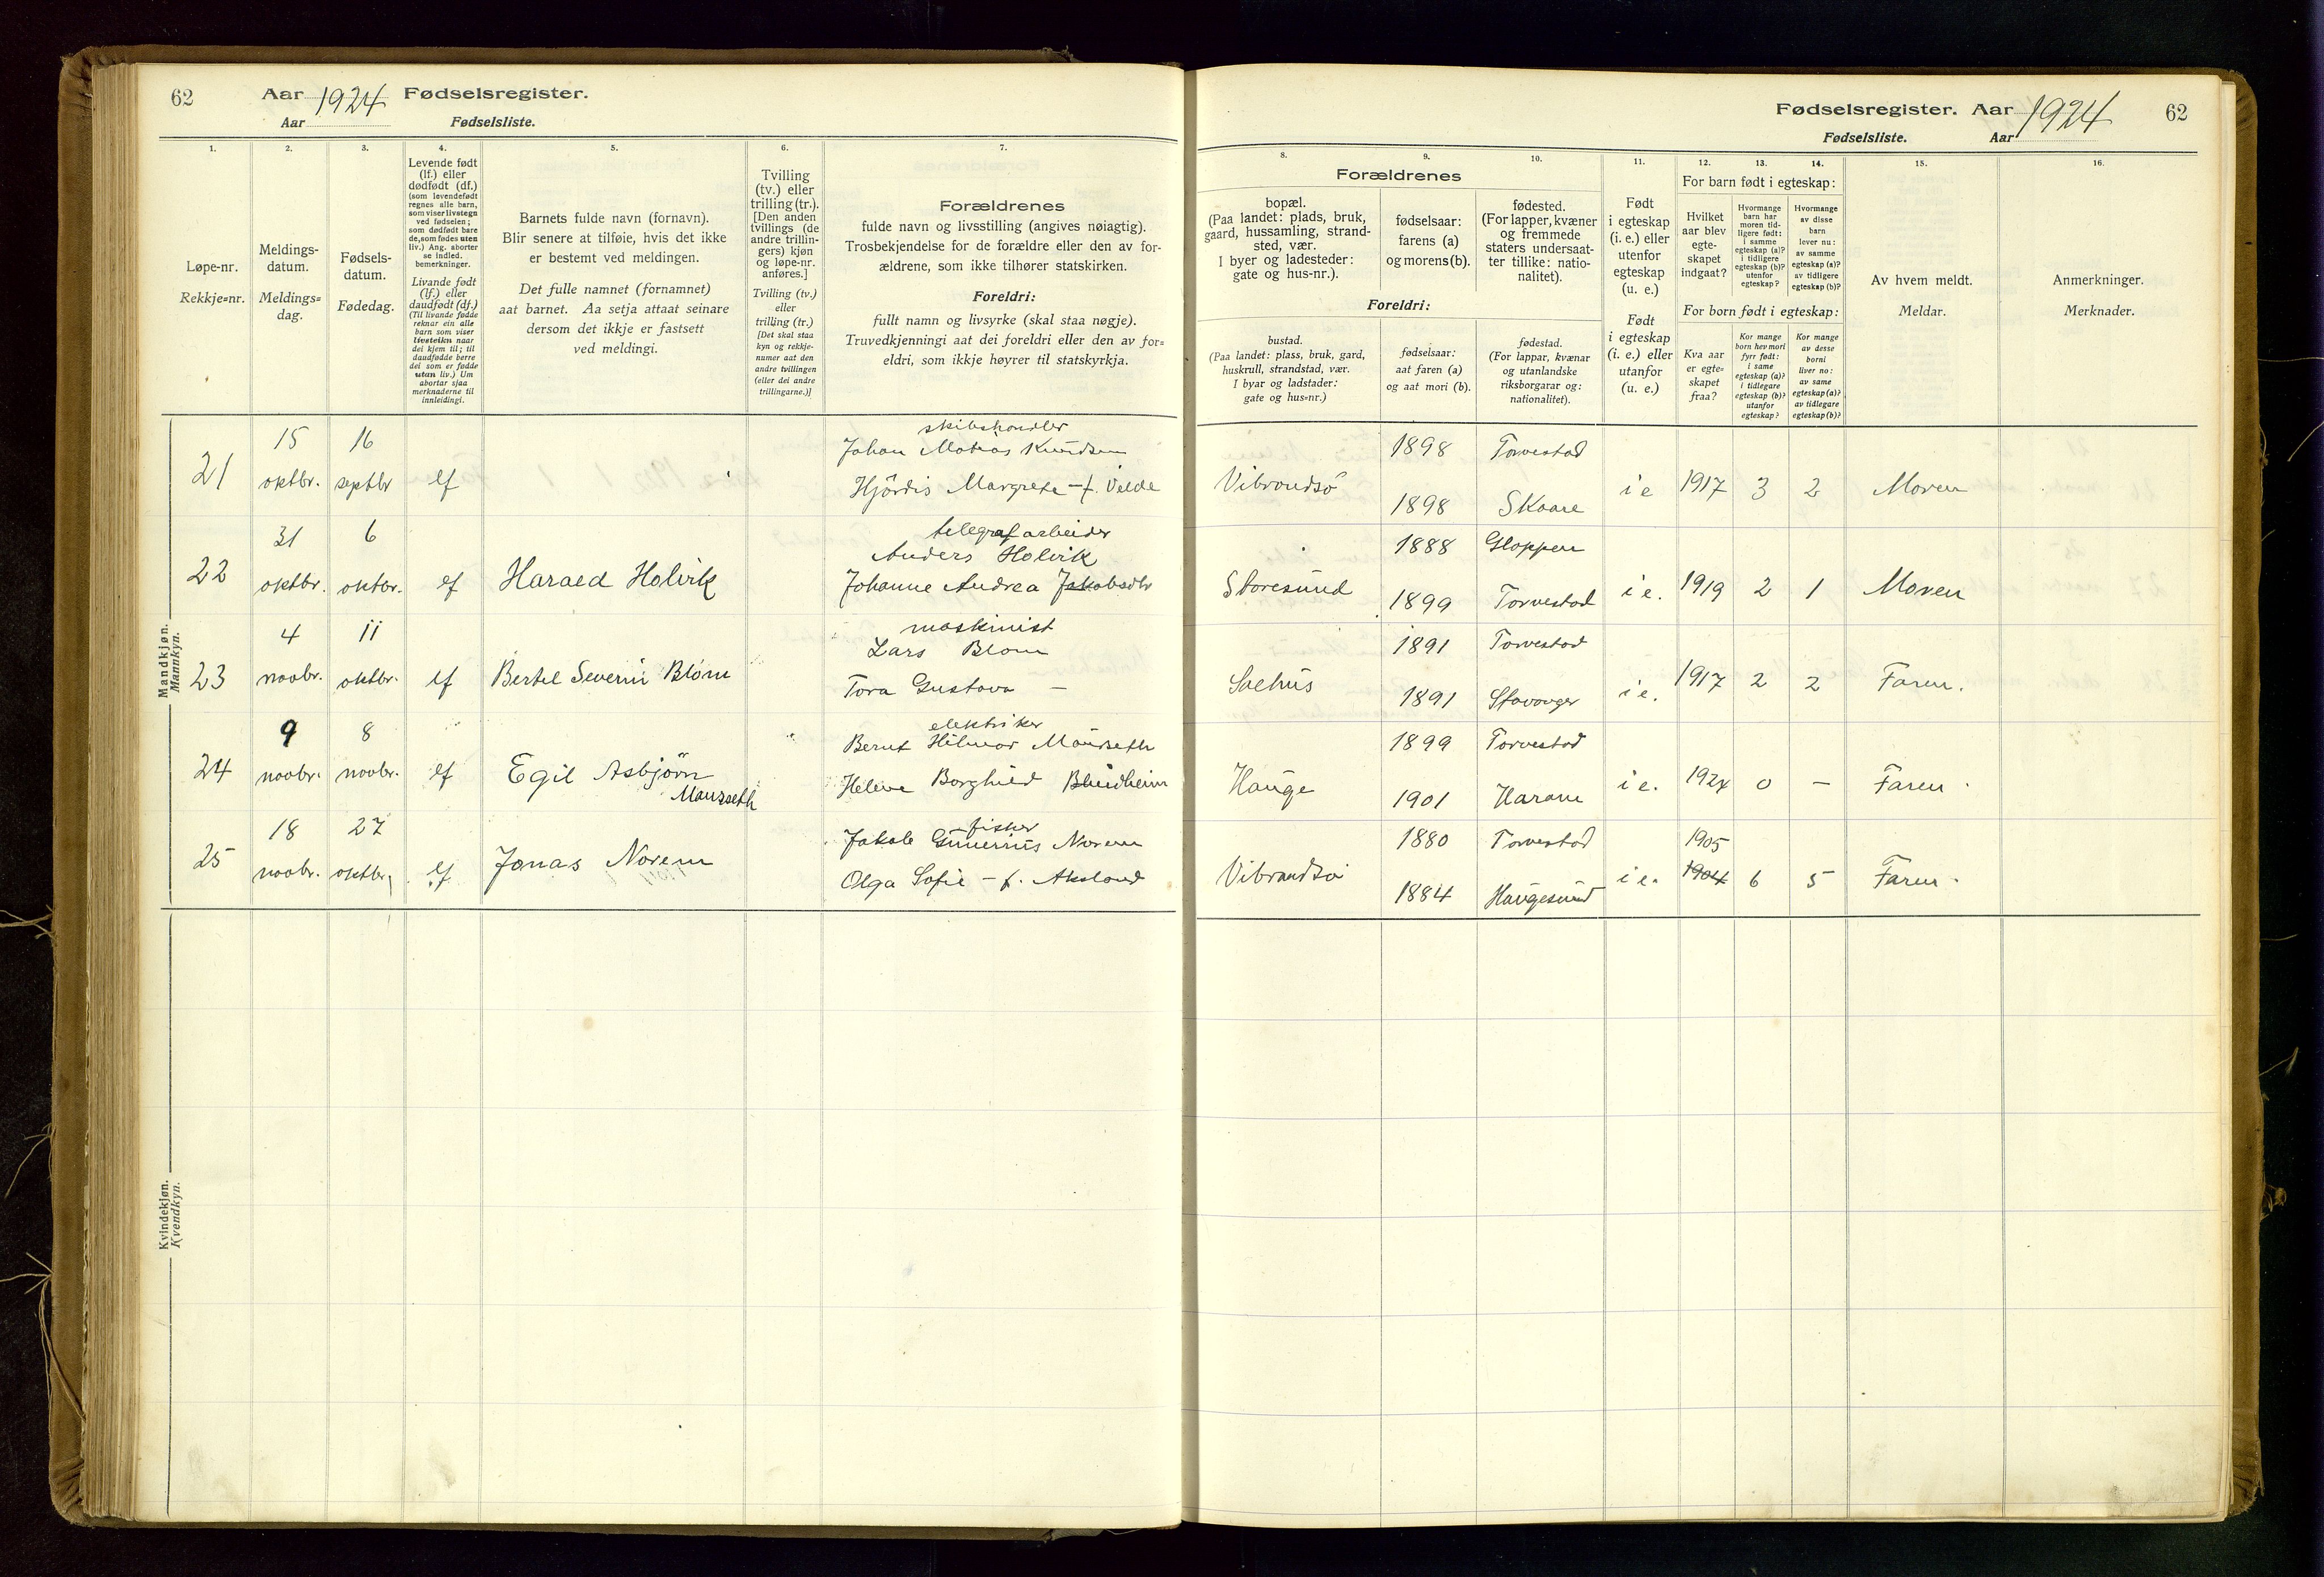 62 Aar 1924 Fødselsregister.
Aar Fødselsliste.
1. 2. 3. 4. 5. 6. 7.
Løpe-nr.
Rekkje=nr.
Meldings-
datum.
Meldings=
dag.
Fødsels-
datum.
Fødedag.
Levende født
(lf.) eller
dødfødt (df.)
(som levendefødt
regnes alle barn,
som viser livstegn
ved fødselen;
som dødfødt bare
de, som fødes uten
liv.) Ang. aborter
se indled.
bemerkninger.
Livande født
(lf.) eller
daudfødt (df.)
(Til livande fødde
reknar ein alle
barn som viser
livsteikn naar
dei kjem til; til
daudfødde berre
dei som er fødde
utan liv.) Um
abortar sjaa
merknaderne til
innleidingi.
Barnets fulde navn (fornavn).
Blir senere at tilføie, hvis det ikke
er bestemt ved meldingen.
Det fulle namnet (fornamnet)
aat barnet. Aa setja attaat seinare
dersom det ikkje er fastsett
ved meldingi.
Tvilling
(tv.) eller
trilling (tr.).
[Den anden
tvillings (de
andre trillin-
gers) kjøn
og løpe-nr.
anføres.]
Tvilling (tv.)
eller
trilling (tr.)
[Det skal staa
kyn og rekkje-
numer aat den
andre tvillingen
(eller dei andre
trillingarne.)]
Forældrenes
fulde navn og livsstilling (angives nøiagtig).
Trosbekjendelse for de forældre eller den av for-
ældrene, som ikke tilhører statskirken.
Foreldri:
fullt namn og livsyrke (skal staa nøgje).
Truvedkjenningi aat dei foreldri eller den av for=
eldri, som ikkje høyrer til statskyrkja.
Mandkjøn.
Mannkyn.
21 15 oktbr. 16 septbr lf
skibshandler
Johan Matias Knudsen
Hjördis Margrete - f. Velde
22 31 oktbr. 6 oktbr. lf Harald Holvik
telegrafarbeider
Anders Holvik
Johanne Andrea Jakobsdtr
23 4 novbr. 11 oktbr. lf Bertel Severin Blom
maskinist
Lars Blom
Tora Gustava —
24 9 novbr. 8 novbr. lf Egil Asbjörn
Mausseth
elektriker
Bernt Hilmar Mausseth
Helene Borghild Blindheim
25 18 novbr. 27 oktbr. lf Jonas Norem
fisker
Jakob Gunerius Norem
Olga Sofie - f. Aksland
Kvindekjøn.
Kvendkyn.
Fødselsregister. Aar 1924 62
Fødselsliste. Aar
8. 9. 10. 11. 12. 13. 14. 15. 16.
Forældrenes
bopæl.
(Paa landet: plads, bruk,
gaard, hussamling, strand-
sted, vær.
I byer og ladesteder:
gate og hus-nr.).
fødselsaar:
farens (a)
og morens (b).
fødested.
(For lapper, kvæner
og fremmede
staters undersaat-
ter tillike: natio-
nalitet).
Foreldri:
bustad.
(Paa landet: plass, bruk, gard,
huskrull, strandstad, vær.
I byar og ladstader:
gate og hus=nr.)
fødselsaar:
aat faren (a)
og aat mori (b).
fødestad.
(For lappar, kvænar
og utanlandske
riksborgarar og:
nationalitet).
Født
i egteskap
(i. e.) eller
utenfor
egteskap
(u. e.)
Født
i egteskap
(i. e.) eller
utanfor
(u. e.)
For barn født i egteskap:
Hvilket
aar blev
egte-
skapet
indgaat?
Hvormange
barn har
moren tid-
ligere født:
i samme
egteskap (a)?
i tidligere
egteskap (b)?
utenfor
egteskap?
Hvormange
av disse
barn
lever nu:
av samme
egteskap (a)?
av tidligere
egteskap (b)?
For born født i egteskap:
Kva aar
er egte=
skapet
fraa?
Kor mange
born hev mori
fyrr født:
i same
egteskap (a)?
i tidlegare
egteskap (b)?
utanfor
egteskap?
Kor mange
av desse
borni
liver no:
av same
egteskap (a)?
av tidlegare
egteskap (b)?
Av hvem meldt.
Meldar.
Anmerkninger.
Merknader.
Vibrandsö 1898 Torvestad
1898 Skaare i e 1917 3 2 Moren
Storesund 1888 Gloppen
1899 Torvestad i e. 1919 2 1 Moren
Salhus 1891 Torvestad
1891 Stavanger i e. 1917 2 2 Faren.
Hauge 1899 Torvestad
1901 Haram i e. 1924 0 — Faren.
Vibrandsö 1880 Torvestad 1905
1884 Haugesund i e. 1904 6 5 Faren.